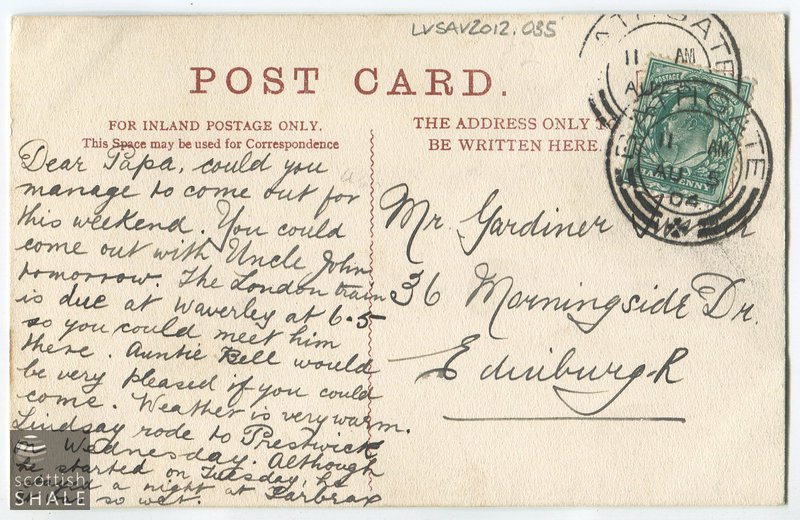 LVSAV2012.035
POST CARD.
FOR INLAND POSTAGE ONLY.
This Space may be used for Correspondence
THE ADDRESS ONLY
BE WRITTEN HERE.
11 AM
11 AM
AU 5
04
HALFPENNY
Dear Papa, could you
manage to come out for
this weekend. You could
come out with Uncle John
tomorrow. The London train
is due at Waverley at 6.5
so you could meet him
there. Auntie Bell would
be very pleased if you could
come. Weather is very warm.
Lindsay rode to Prestwick
on Wednesday. Although
he started on Tuesday, he
a night at Tarbrax
so wet.
Mr. Gardiner
36 Morningside Dr.
Edinburgh
scottish
SHALE